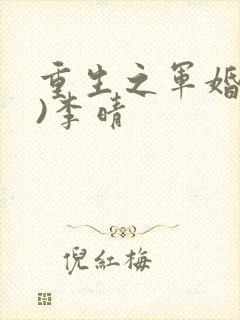 重生之军婚
)李晴
倪红梅